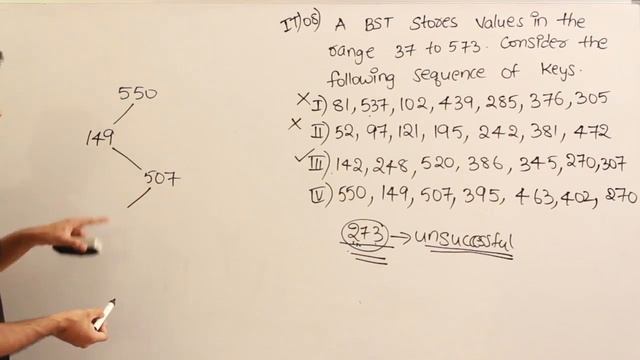 IT'08) A BST Stores values in the
range 37 to 573. Consider the
following sequence of keys.
× I) 81, 537, 102, 439, 285, 376, 305
× II) 52, 97, 121, 195, 242, 381, 472
✓ III) 142, 248, 520, 386, 345, 270, 307
IV) 550, 149, 507, 395, 463, 402, 270
273 → unsuccessful
550
149
507